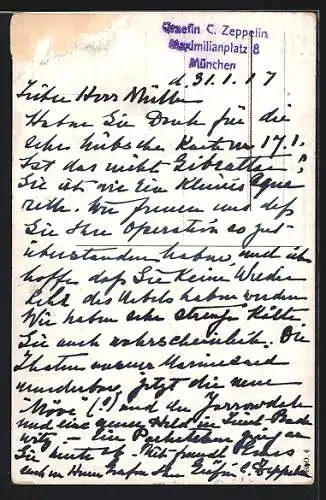 Graefin C. Zeppelin
Maximilianplatz 8
München
d. 31.1.17
Lieber Herr Müller
Haben Sie Dank für die
sehr hübsche Karte v. 17.1.
Ist das nicht Gibraltar?
Sie ist wie ein kleines Aqua
rell. Wir freuen uns daß
Sie Ihre Operation so gut
überstanden haben, und ich
hoffe daß Sie keine Wieder
kehr des Übels haben werden
Wir haben sehr strenge Kälte
Sie auch wahrscheinlich. Die
Thaten unserer Marine sind
wunderbar, jetzt die neue
"Möve" (?) und die Yarrowdale
und eine neuer Held
– Ein Packetchen
Sie heute ab. Mit freundl. Gruss
auch v. Grafen Ihre Gräfin C. Zeppelin